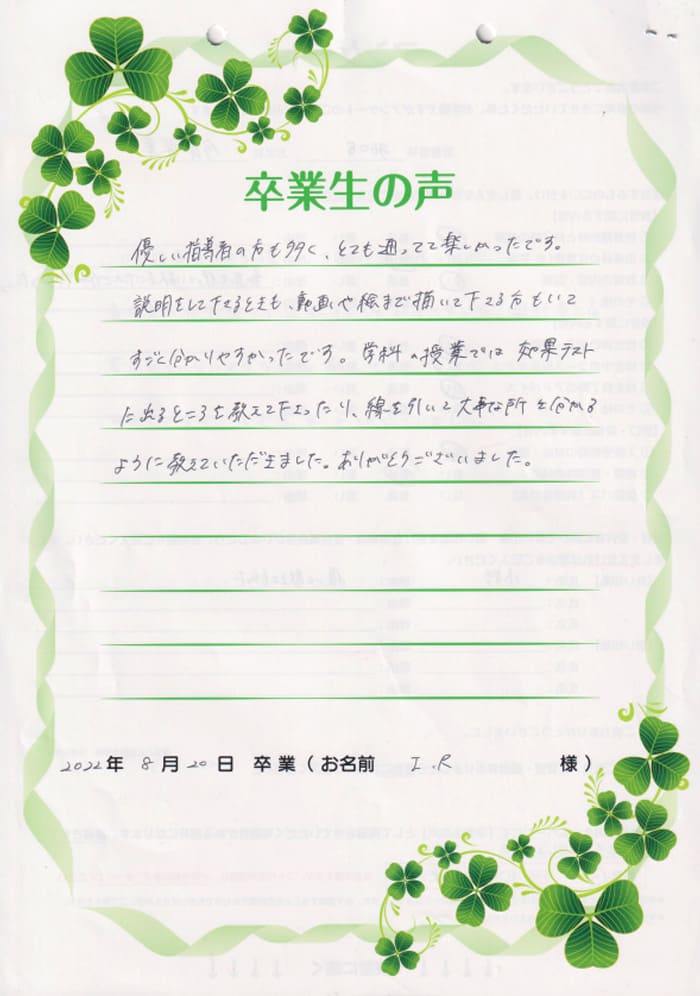 卒業生の声
優しい指導者の方も多く、とても通ってて楽しかったです。
説明をして下さるときも、動画や絵まで描いて下さる方もいて
すごく分かりやすかったです。学科の授業では効果テスト
に出るところを教えて下さったり、線を引いて大事な所を分かる
ように教えていただきました。ありがとうございました。
2022年 8月 20日 卒業(お名前 I.R 様)